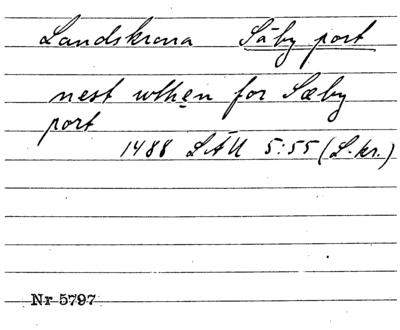 Landskrona Säby port
nest wthen for Sæby
port
1488 LÄU 5:55 (L-kr.)
Nr 5797